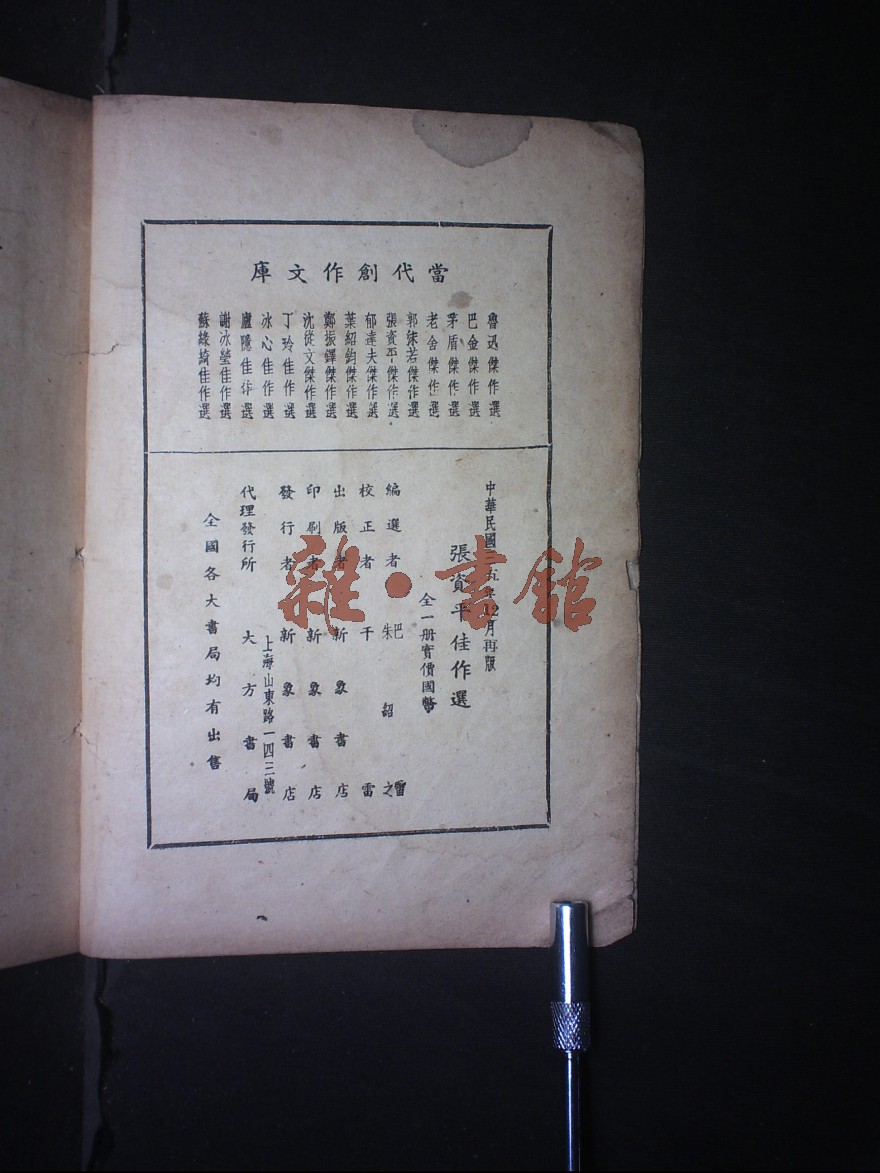 當代創作文庫
魯迅傑作選
巴金傑作選
茅盾傑作選
老舍傑作選
郭沫若傑作選
張資平傑作選
郁達夫傑作選
葉紹鈞傑作選
鄭振鐸傑作選
沈從文傑作選
丁玲佳作選
冰心佳作選
廬隱佳作選
謝冰瑩佳作選
蘇綠綺佳作選
中華民國三五年12月再版
張資平佳作選
全一册實價國幣
編選者 巴雷 朱紹之
校正者 干雷
出版者 新象書店
印刷者 新象書店
發行者 新象書店
上海山東路一四三號
代理發行所 大方書局
全國各大書局均有出售
雜·書館